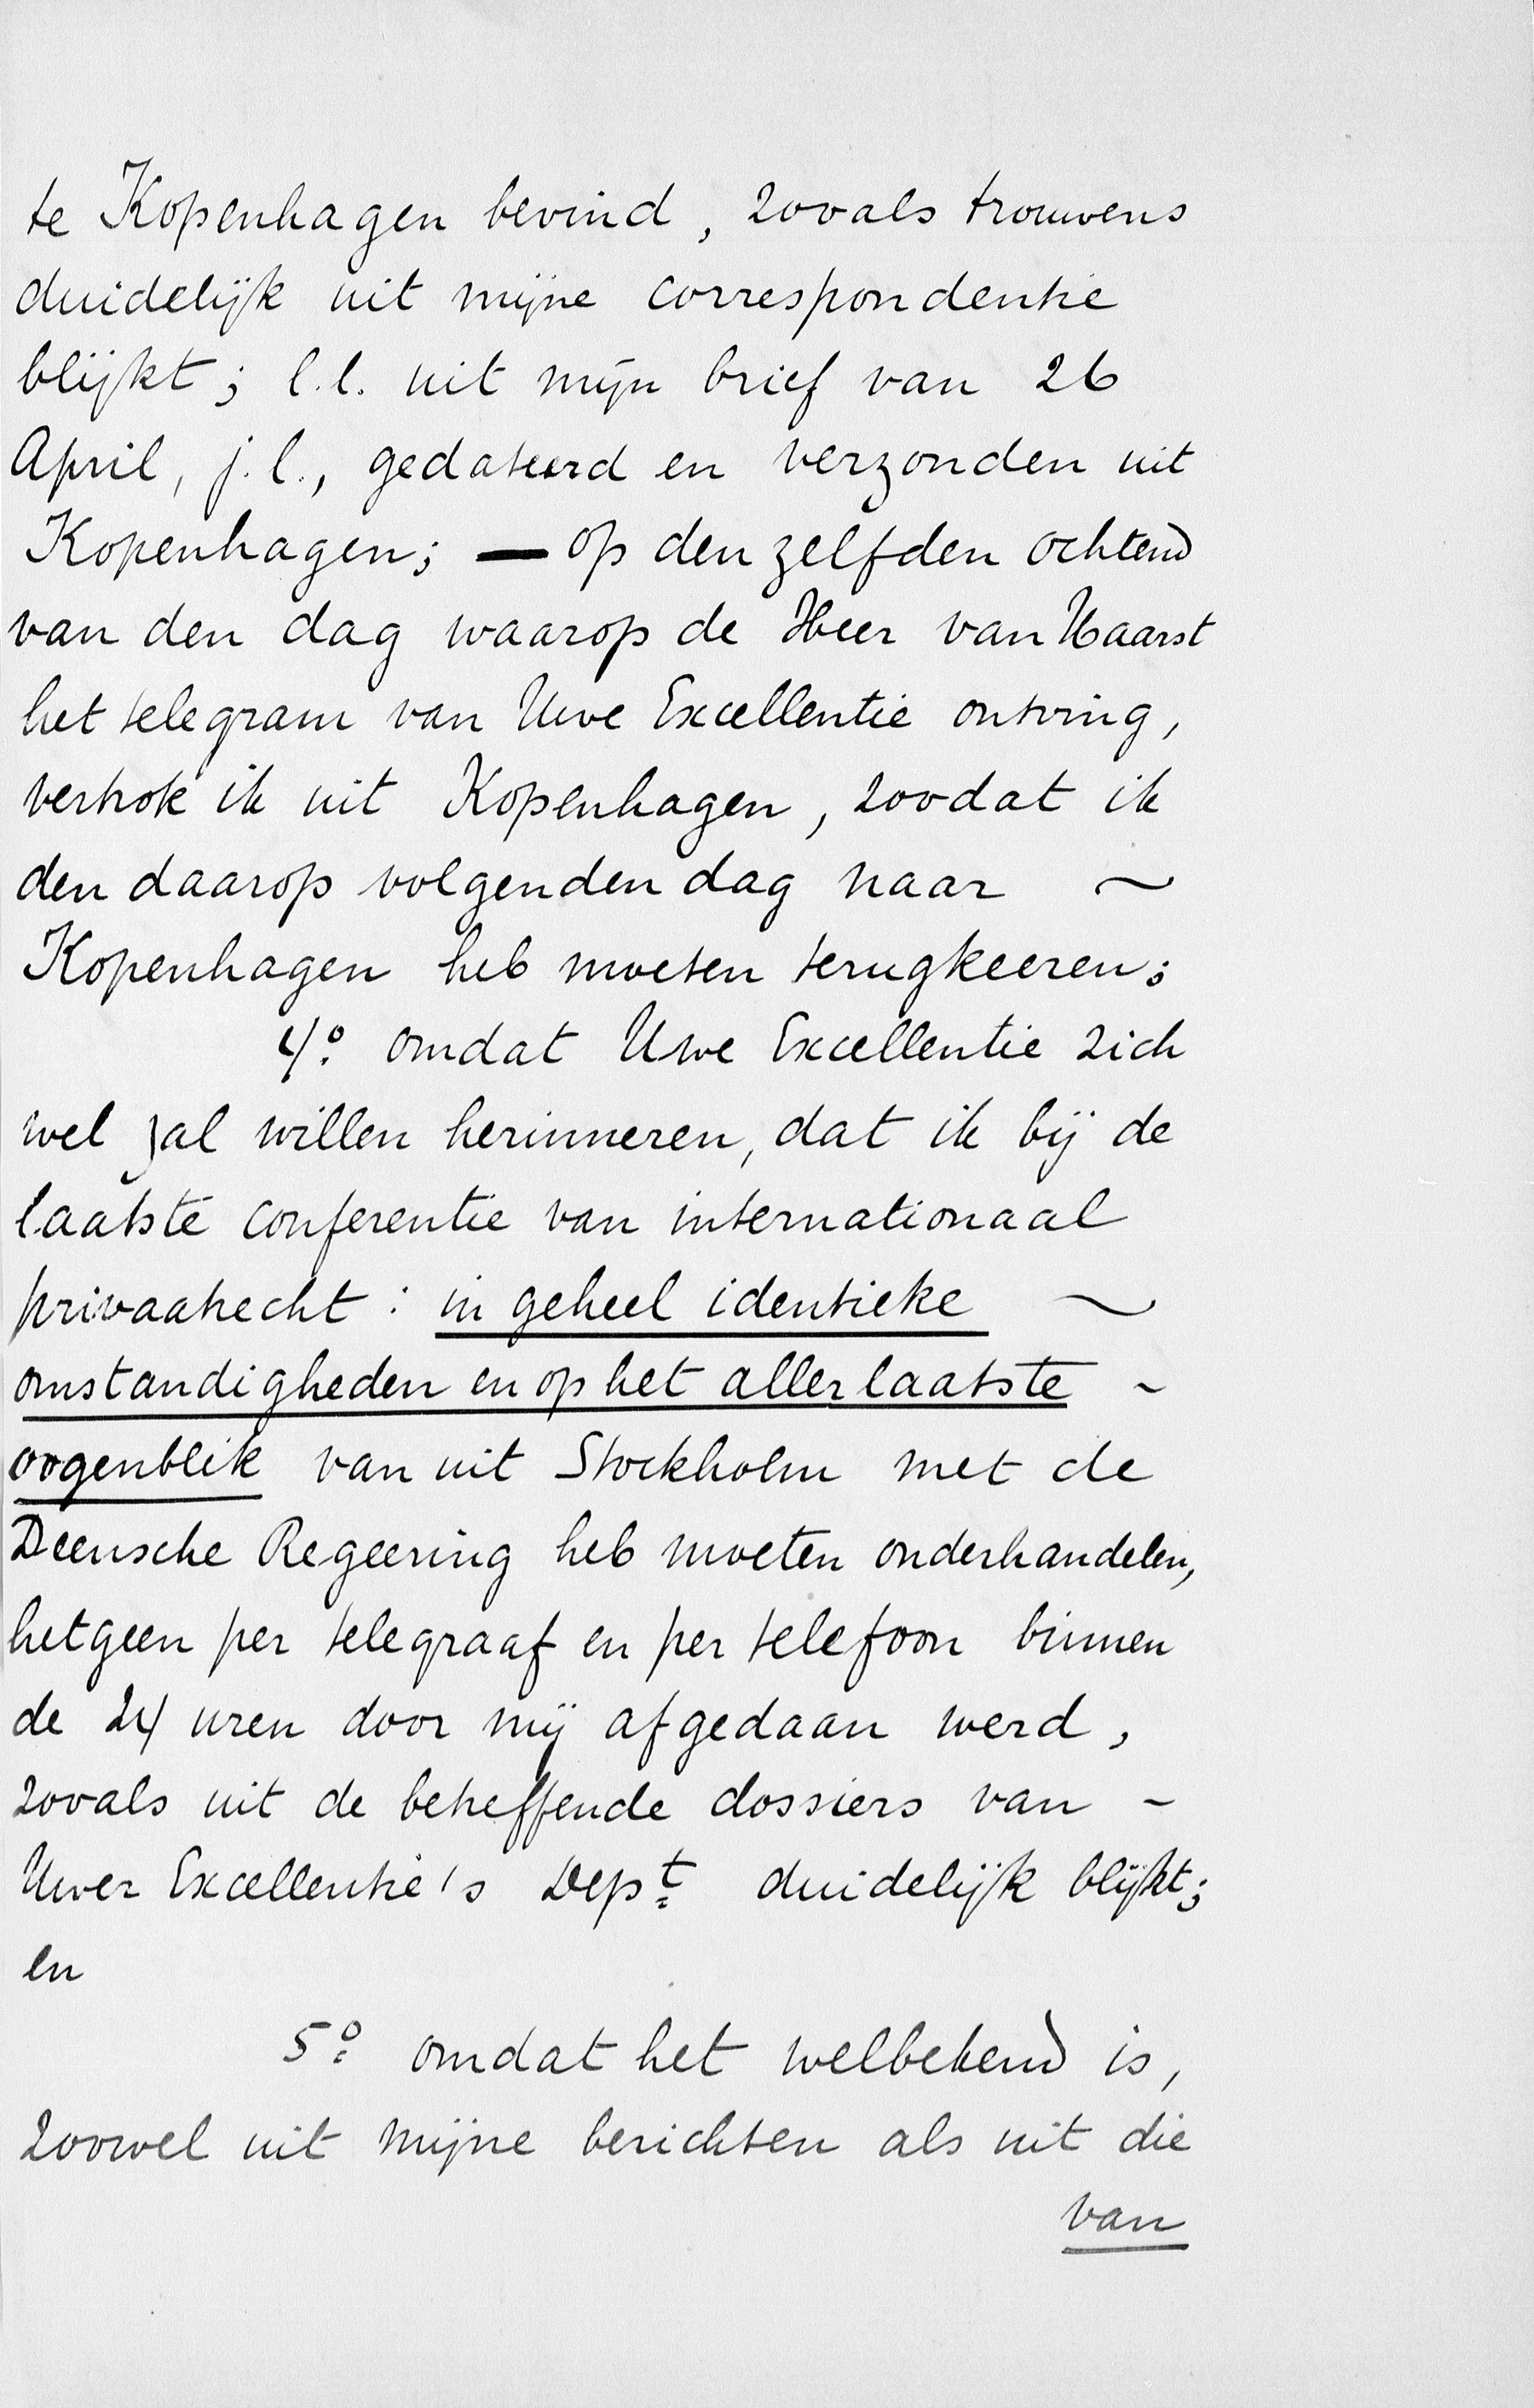 te Kopenhagen bevind, zooals trouwens
duidelijk uit mijne correspondentie
blijkt; l.l. uit mijn brief van 26
April, j.l., gedateerd en verzonden uit
Kopenhagen; — op den zelfden ochtend
van den dag waarop de Heer van Haarst
het telegram van Uwe Excellentie ontving,
vertrok ik uit Kopenhagen, zoodat ik
den daarop volgenden dag naar ~
Kopenhagen heb moeten terugkeeren;
4º omdat Uwe Excellentie zich
wel zal willen herinneren, dat ik bij de
laatste conferentie van internationaal
privaatrecht: in geheel identieke ~
omstandigheden en op het allerlaatste ~
oogenblik van uit Stockholm met de
Deensche Regeering heb moeten onderhandelen,
hetgeen per telegraaf en per telefoon binnen
de 24 uren door mij afgedaan werd,
zooals uit de betreffende dossiers van -
Uwer Excellentie's Dept duidelijk blijkt;
en
5º omdat het welbekend is,
zoowel uit mijne berichten als uit die
van